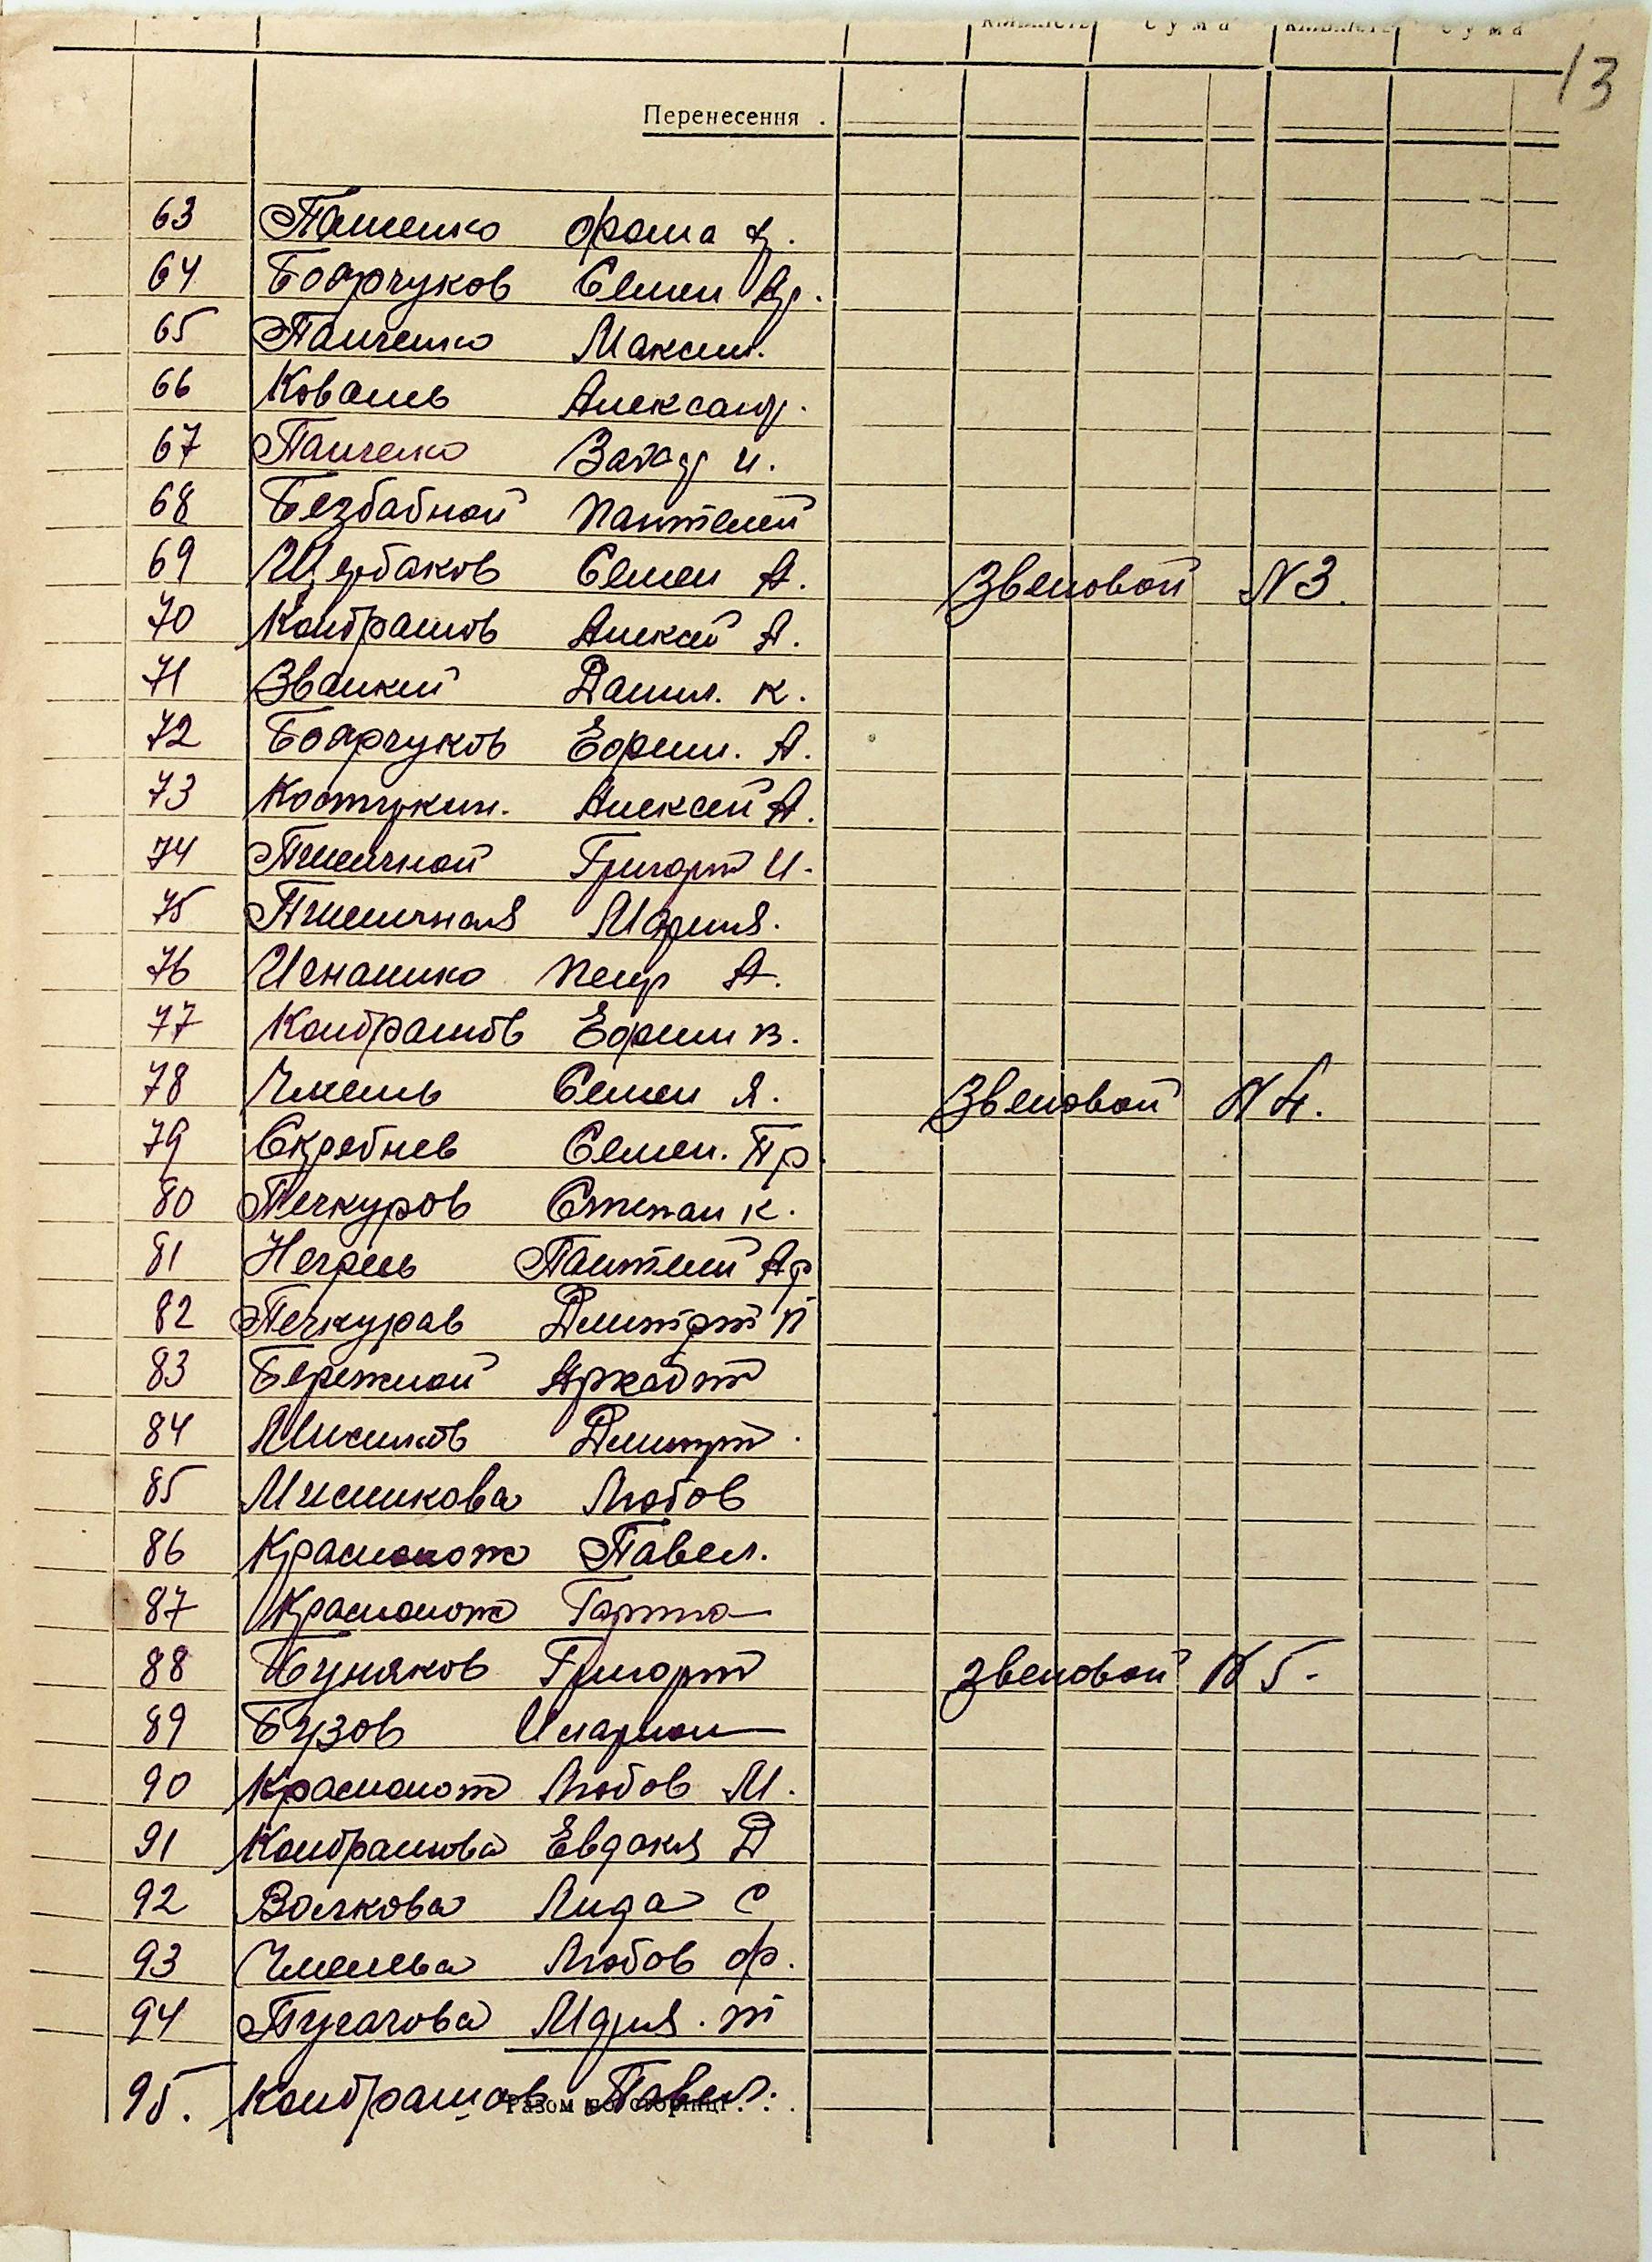 Кількість Сума Кількість Сума
13
Перенесення .
63 Пащенко Фома
64 Боярчуков Семен Ар.
65 Панченко Максим.
66 Коваль Александ.
67 Панченко Захар И.
68 Безбабной Пантелей
69 Щербаков Семен А. Звеновой N 3.
70 Кондрашов Алексей А.
71 Званкий Данил. К.
72 Боярчуков Ефим. А.
73 Костюкин. Алексей А.
74 Пшеничной Григорий И.
75 Пшеничная Мария.
76 Игнашко Петр А.
77 Кондрашов Ефим В.
78 Чмель Семен Я. Звеновой N 4.
79 Скребнев Семен. Пр
80 Печкуров Степан К.
81 Негрей Пантелей Ар
82 Печкуров Дмитрий П
83 Бережной Аркадий
84 Мисиков Дмитрий.
85 Мисикова Любов
86 Краснонож Павел.
87 Краснонож
88 Буняков Григорий Звеновой N 5.
89 Бузов Иларион
90 Краснонож Любов М.
91 Кондрашова Евдокия Д
92 Волкова Лида С
93 Чмелева Любов Ф.
94 Пугачова Мария. Т
95. Кондрашов Павел.
Разом по сторінці . .